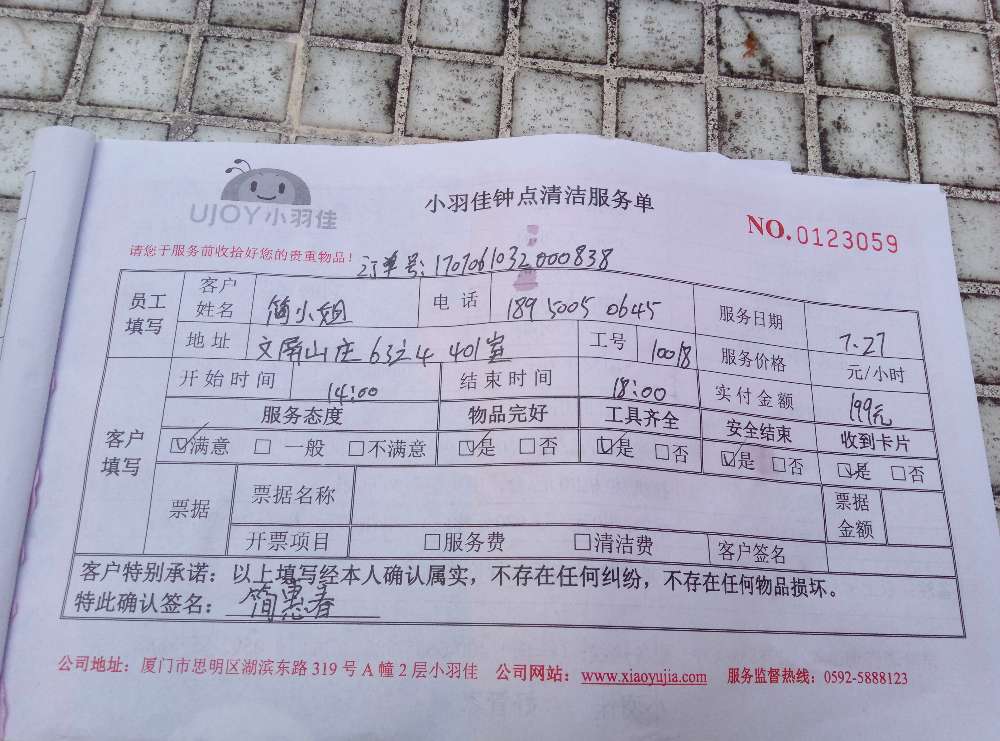 UJOY小羽佳
小羽佳钟点清洁服务单
NO.0123059
请您于服务前收拾好您的贵重物品!
订单号:1707061032000838
员工填写 客户姓名 简小姐 电话 189 5005 0645 服务日期 7.27
地址 文屏山庄 63之4 401室 工号 10018 服务价格 元/小时
客户填写 开始时间 14:00 结束时间 18:00 实付金额 199元
服务态度 物品完好 工具齐全 安全结束 收到卡片
☑满意 □一般 □不满意 ☑是 □否 ☑是 □否 ☑是 □否 ☑是 □否
票据 票据名称 票据金额
开票项目 □服务费 □清洁费 客户签名
客户特别承诺:以上填写经本人确认属实,不存在任何纠纷,不存在任何物品损坏。
特此确认签名:简惠春
公司地址:厦门市思明区湖滨东路 319 号 A 幢 2 层小羽佳 公司网站:www.xiaoyujia.com 服务监督热线:0592-5888123